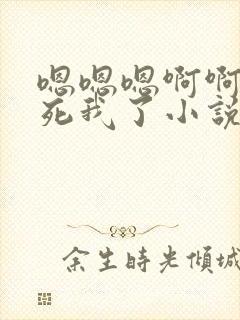 嗯嗯嗯啊啊
死我了小説
余生時光傾城